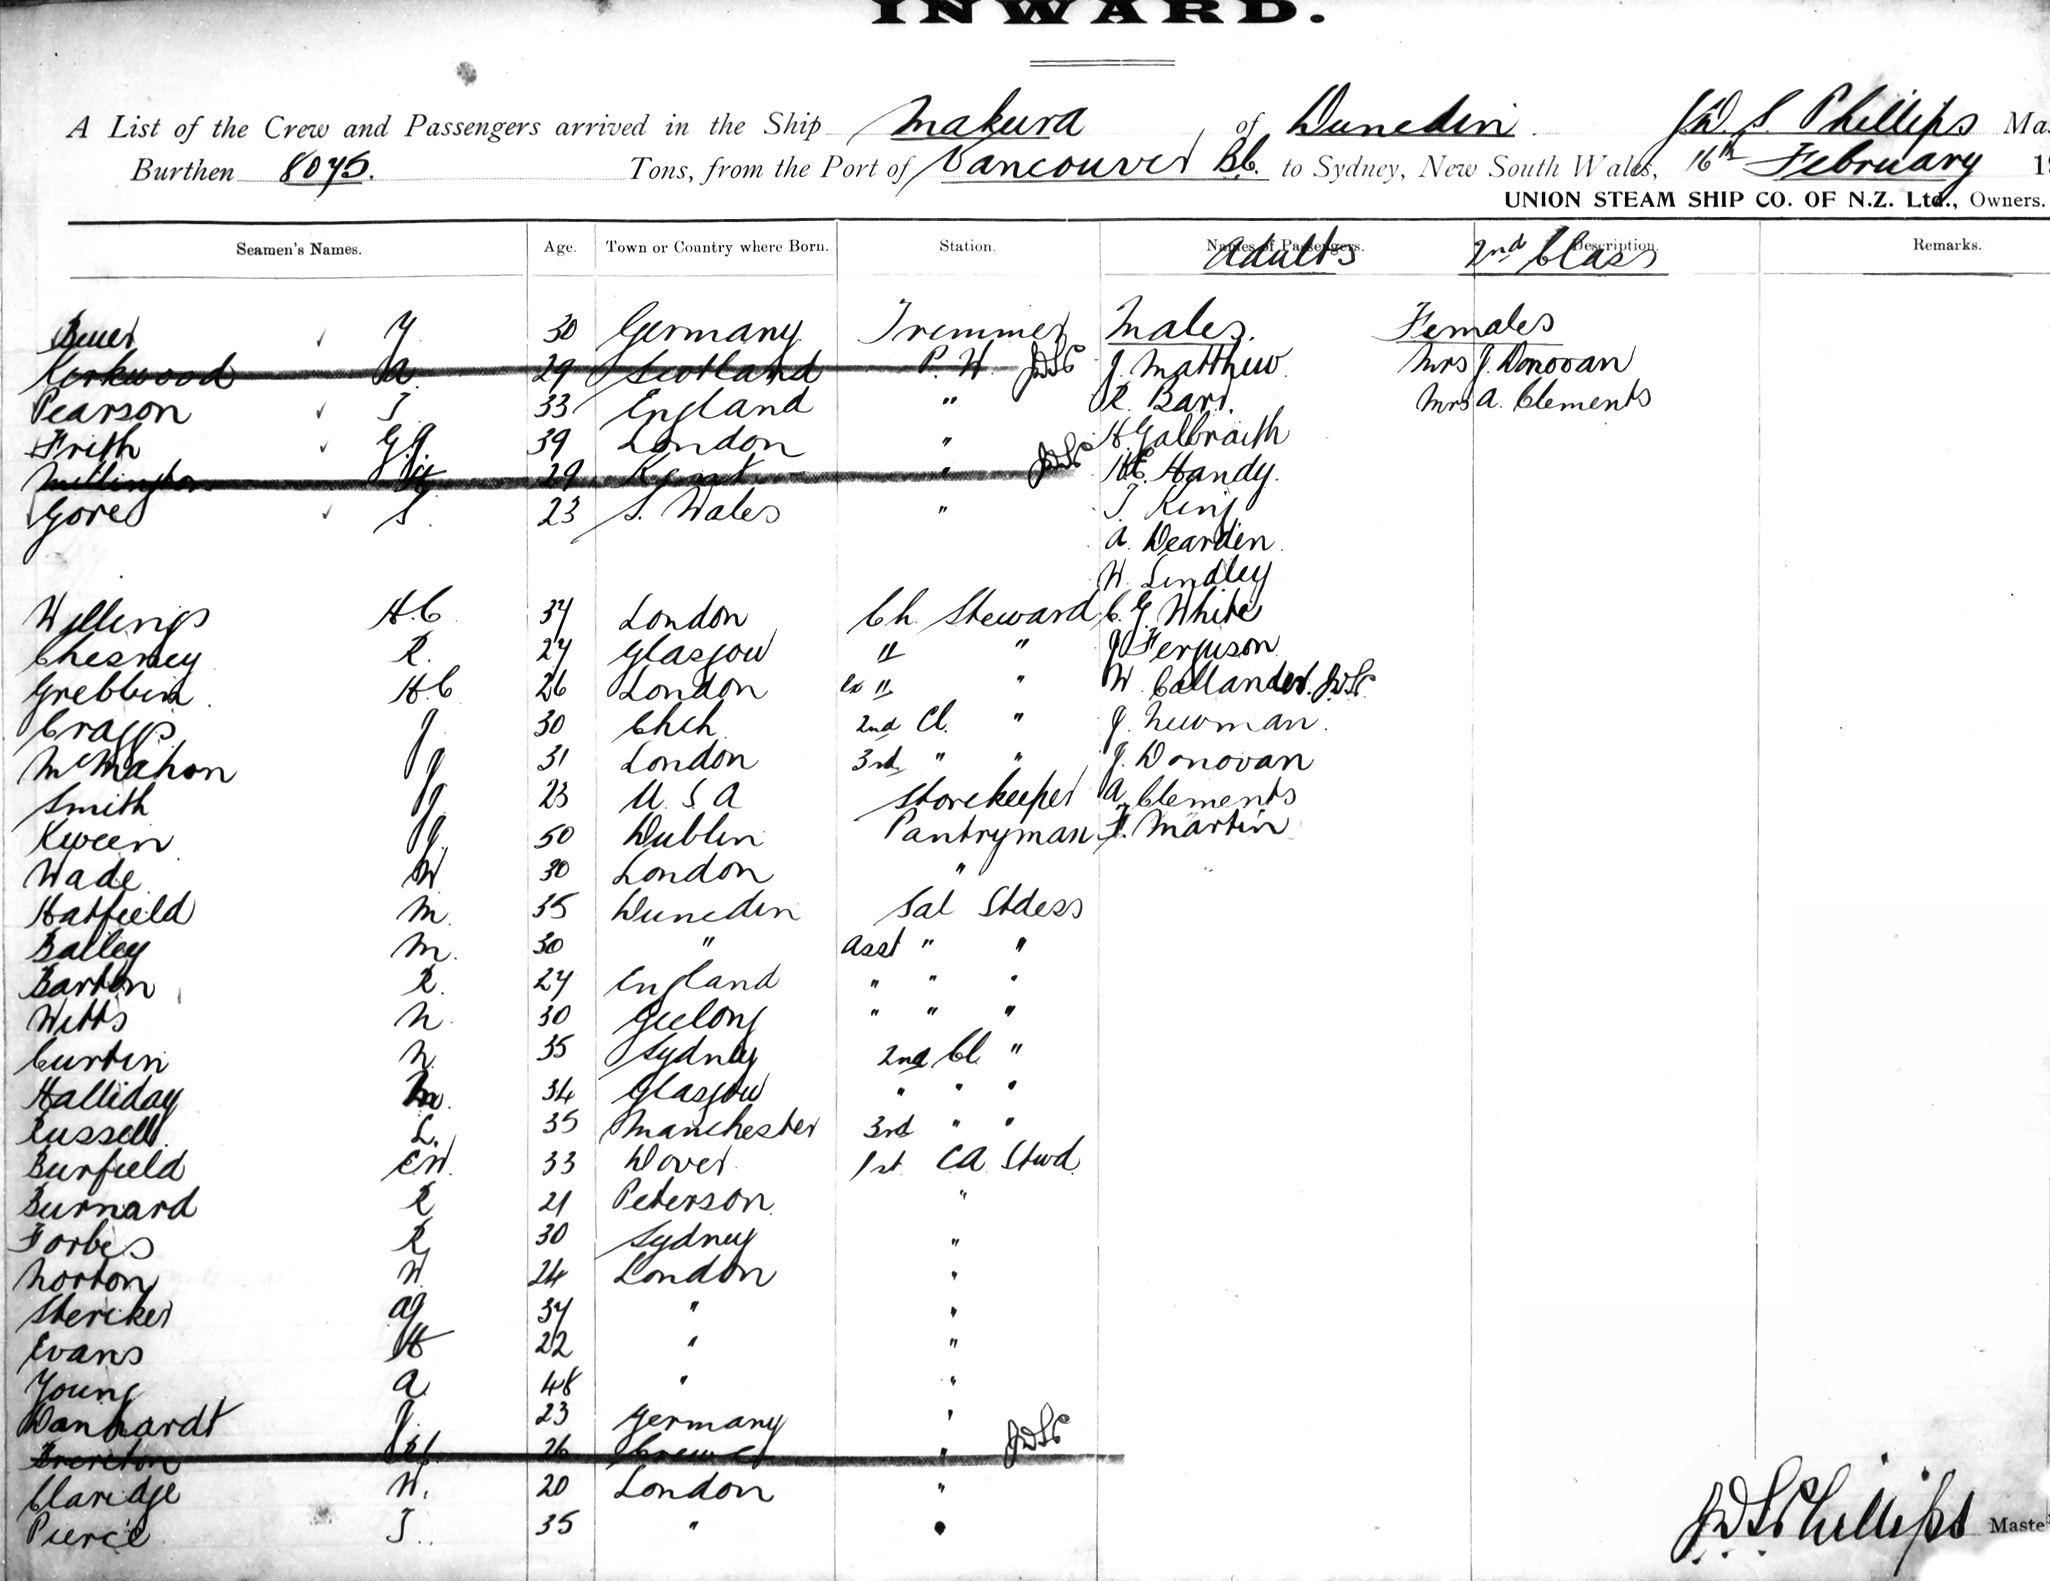 INWARD.
A List of the Crew and Passengers arrived in the Ship Makura of Dunedin J.D.S. Phillips Mas
Burthen 8075. Tons, from the Port of Vancouver B.C. to Sydney, New South Wales, 16th February 19
UNION STEAM SHIP CO. OF N.Z. Ltd., Owners.
Seamen's Names. Age. Town or Country where Born. Station. Names of Passengers. Description. Remarks.
Adults 2nd Class
Y. 30 Germany Trimmer Males. Females
Kirkwood A. 29 Scotland P. W. JDSP J. Matthew Mrs J. Donovan
Pearson T. 33 England " R. Barr. Mrs A. Clements
Frith G.J. 39 London " H. Galbraith
Millington H 29 Kent " JDSP Handy.
Gore S. 23 S. Wales " T. King
A. Dearden
W. Lindley
Willings H.C. 37 London Ch. Steward C. G. White
Chesney R. 27 Glasgow " " J Ferguson
Grebbin H.C 26 London " " W. Callander. JDSP
Craggs J 30 Chch 2nd Cl. " J. Newman.
McMahon J 31 London 3rd " " J. Donovan
Smith J. 23 U. S. A Storekeeper A. Clements
Kween J. 50 Dublin Pantryman F. Martin
Wade W. 30 London "
Hatfield M. 35 Dunedin Sal Stdess
Bailey M. 30 " Asst " "
Barton R. 27 England " " "
Witts N. 30 Geelong " " "
Curtin N. 35 Sydney 2nd Cl. "
Halliday M. 34 Glasgow " " "
Russell L. 35 Manchester 3rd " "
Burfield C.W. 33 Dover 1st CA. Stwd.
Burnard R 21 Peterson "
Forbes R 30 Sydney "
Norton W. 24 London "
Stericker AJ 37 " "
Evans H 22 " "
Young A. 48 " "
Danhardt J. 23 Germany "
Brereton 26 Crewe " JDSP
Claridge W. 20 London "
Pierce T. 35 " "
JDS Phillips Maste